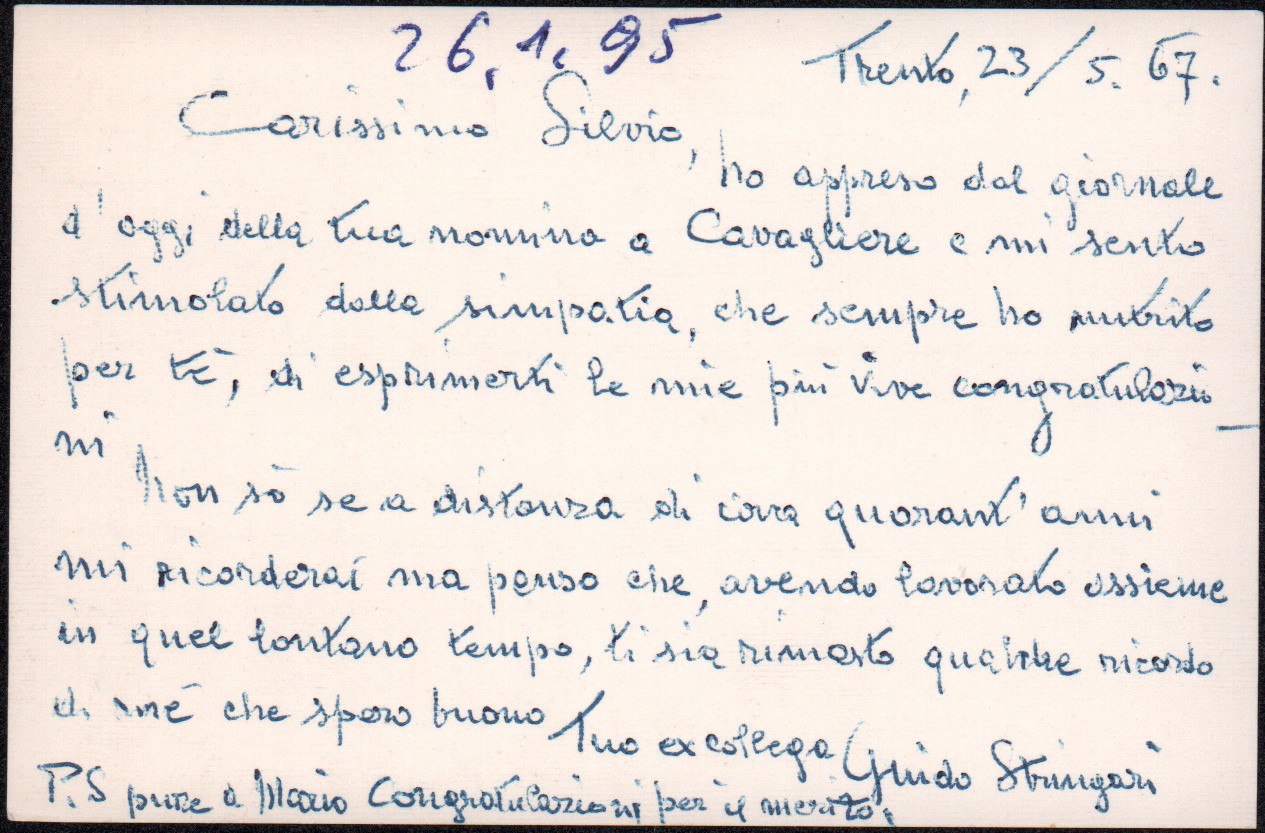 26.1.95
Trento, 23/5.67.
Carissimo Silvio,
ho appreso dal giornale
d'oggi della tua nomina a Cavagliere e mi sento
stimolato dalla simpatia, che sempre ho nutrito
per tè, di esprimerti le mie più vive congratulazio
ni
Non sò se a distanza di circa quarant'anni
mi ricorderai ma penso che, avendo lavorato assieme
in quel lontano tempo, ti sia rimasto qualche ricordo
di mè che spero buono
Tuo ex collega Guido Stringari
P.S pure a Mario Congratulazioni per il merito.